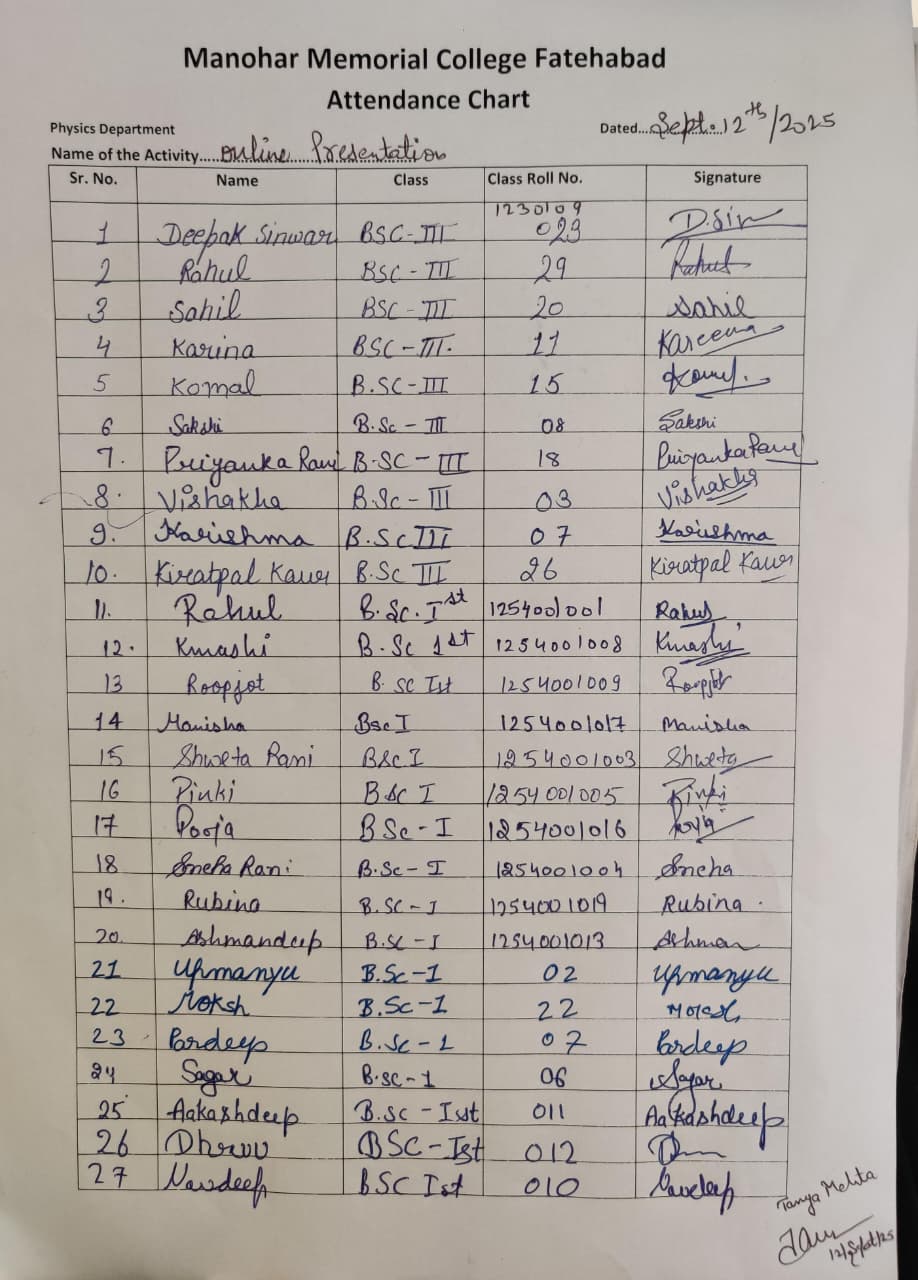 Manohar Memorial College Fatehabad
Attendance Chart
Physics Department Dated....Sept. 12th/2025
Name of the Activity.....Online Presentation
Sr. No. Name Class Class Roll No. Signature
1230109
1 Deepak Sinwar BSC-III 023 D.Sin
2 Rahul BSC-III 29 Rahul
3 Sahil BSC-III 20 Sahil
4 Karina BSC-III. 11 Kareena
5 Komal B.SC-III 15 Komal.
6 Sakshi B.Sc-III 08 Sakshi
7. Priyanka Rani B.SC-III 18 Priyanka Rani
8. Vishakha B.Sc-III 03 Vishakha
9. Karishma B.Sc III 07 Karishma
10. Kiratpal Kaur B.Sc III 26 Kiratpal Kaur
11. Rahul B.Sc.Ist 1254001001 Rahul
12. Kmashi B.Sc 1st 1254001008 Kmashi
13 Roopjot B.SC Ist 1254001009 Roopjot
14 Manisha Bsc I 1254001017 Manisha
15 Shweta Rani BSC I 1254001003 Shweta
16 Pinki BSC I 1254001005 Pinki
17 Pooja BSc-I 1254001016 Pooja
18 Sneha Rani B.Sc-I 1254001004 Sneha
19. Rubina B.SC-I 1254001019 Rubina.
20. Ashmandeep B.SC-I 1254001013 Ashman
21 Upmanyu B.Sc-1 02 Upmanyu
22 Moksh B.Sc-1 22 Moksh
23 Pardeep B.Sc-1 07 Pardeep
24 Sagar B.sc-1 06 Sagar
25 Aakashdeep B.SC-Ist 011 Aakashdeep
26 Dhruv BSC-Ist 012
27 Navdeep BSC Ist 010 Navdeep
Tanya Mehta
12/Sept/25